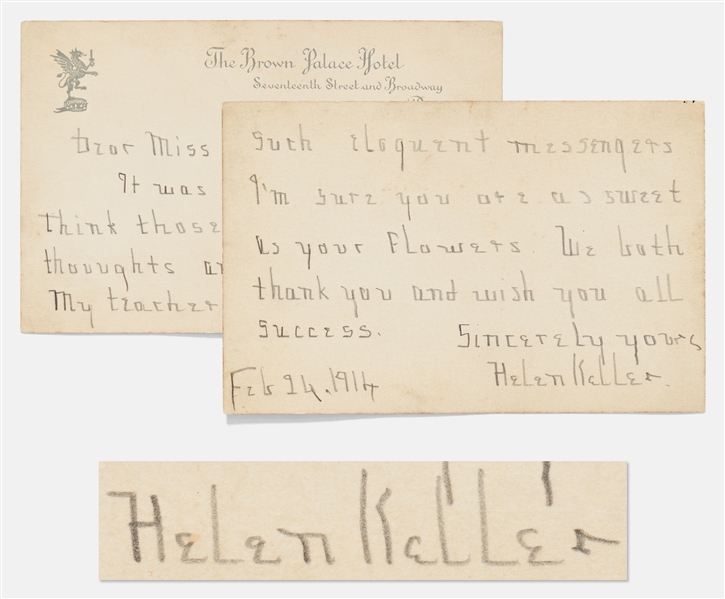 The Brown Palace Hotel
Seventeenth Street and Broadway
Dear Miss
It was
think those
thoughts
My teacher
such eloquent messengers
I'm sure you are as sweet
as your flowers. We both
thank you and wish you all
success.
Sincerely yours
Helen Keller.
Feb 24, 1914
Helen Keller